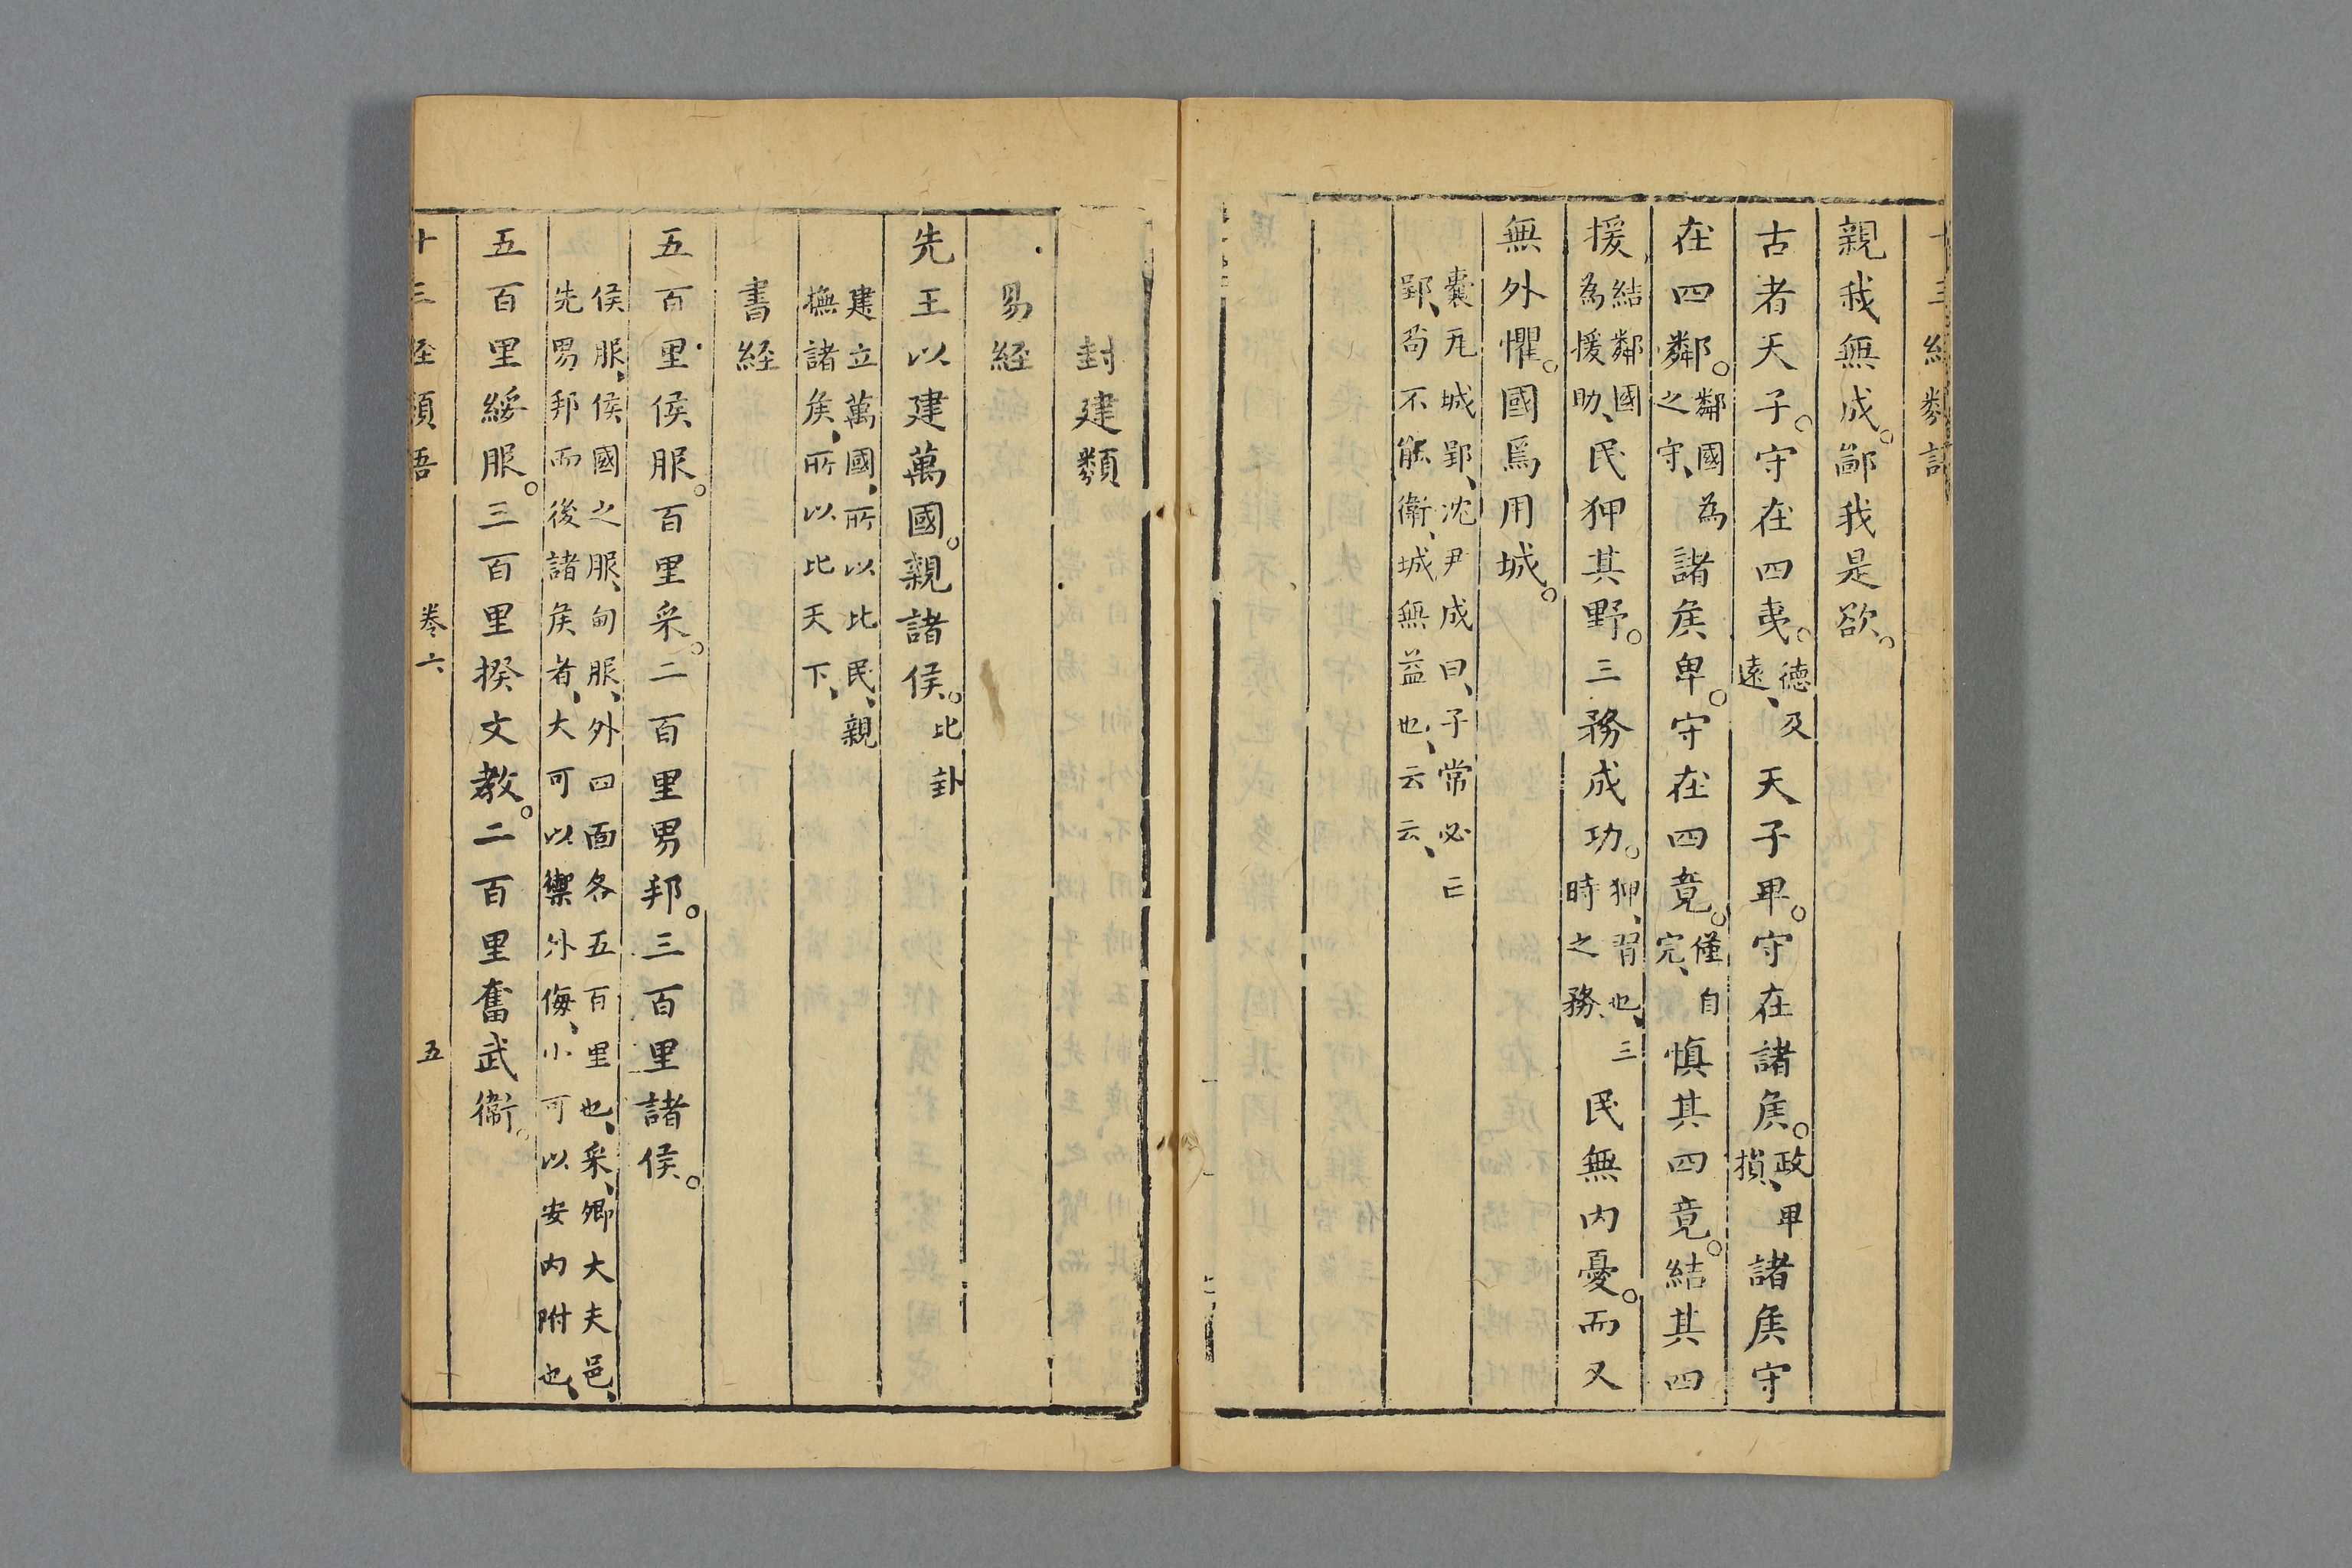 十三經類語
親我無成。鄙我是欲。
古者天子。守在四夷。德及遠、天子卑。守在諸矦。政卑損、諸矦守
在四鄰。鄰國為之守、諸矦卑。守在四竟。僅自完、慎其四竟。結其四
援結鄰國為援助、民狎其野。三務成功。狎、習也、三時之務、民無內憂。而又
無外懼。國焉用城。
囊瓦城郢、沈尹戌曰、子常必亡
郢、苟不能衛、城無益也、云云、
封建類
易經
先王以建萬國。親諸侯。比卦
建立萬國、所以比民、親
撫諸矦、所以比天下、
書經
五百里侯服。百里采。二百里男邦。三百里諸侯。
侯服、侯國之服、甸服、外四面各五百里也、采、卿大夫邑、
先男邦而後諸矦者、大可以禦外侮、小可以安內附也、
五百里綏服。三百里揆文教。二百里奮武衛。
十三經類語 卷六 五